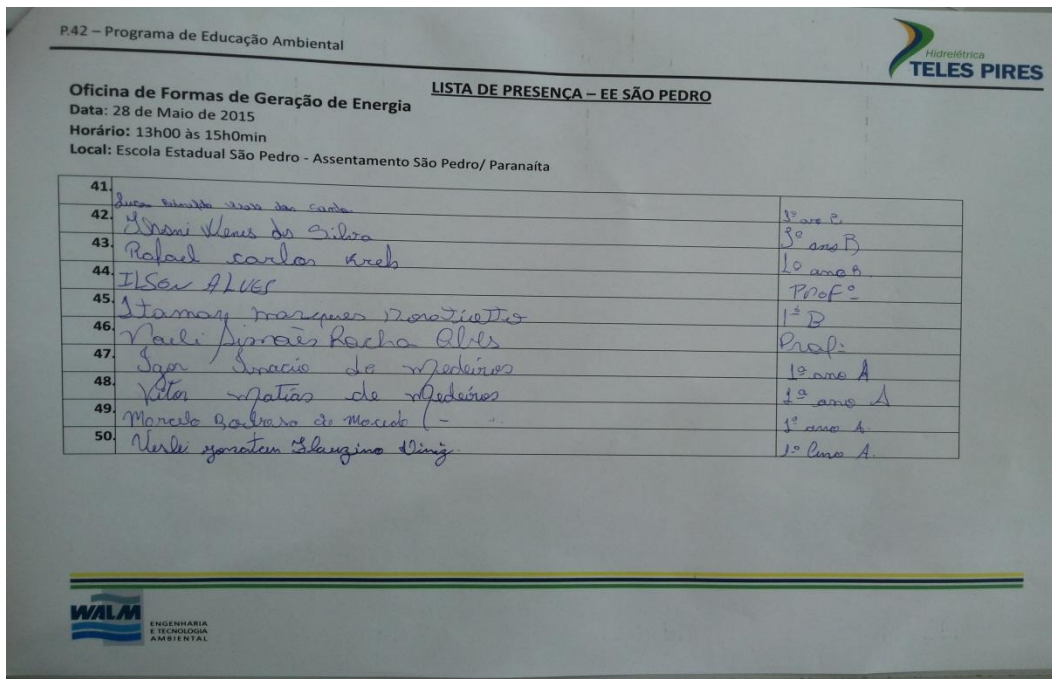 P.42 – Programa de Educação Ambiental
Hidrelétrica
TELES PIRES
LISTA DE PRESENÇA – EE SÃO PEDRO
Oficina de Formas de Geração de Energia
Data: 28 de Maio de 2015
Horário: 13h00 às 15h0min
Local: Escola Estadual São Pedro - Assentamento São Pedro/ Paranaíta
41.
42. da Silva 3º ano B
43. Rafael carlos Kreb 1º ano B
44. ILSON ALVES Profº
45. Itamar marques 1º B
46. Simões Rocha Alves Prof:
47. Igor Inacio de Medeiros 1º ano A
48. Vitor Matias de Medeiros 1º ano A
49. Marcelo de Macedo 1º ano A.
50. 1º Ano A.
WALM
ENGENHARIA
E TECNOLOGIA
AMBIENTAL